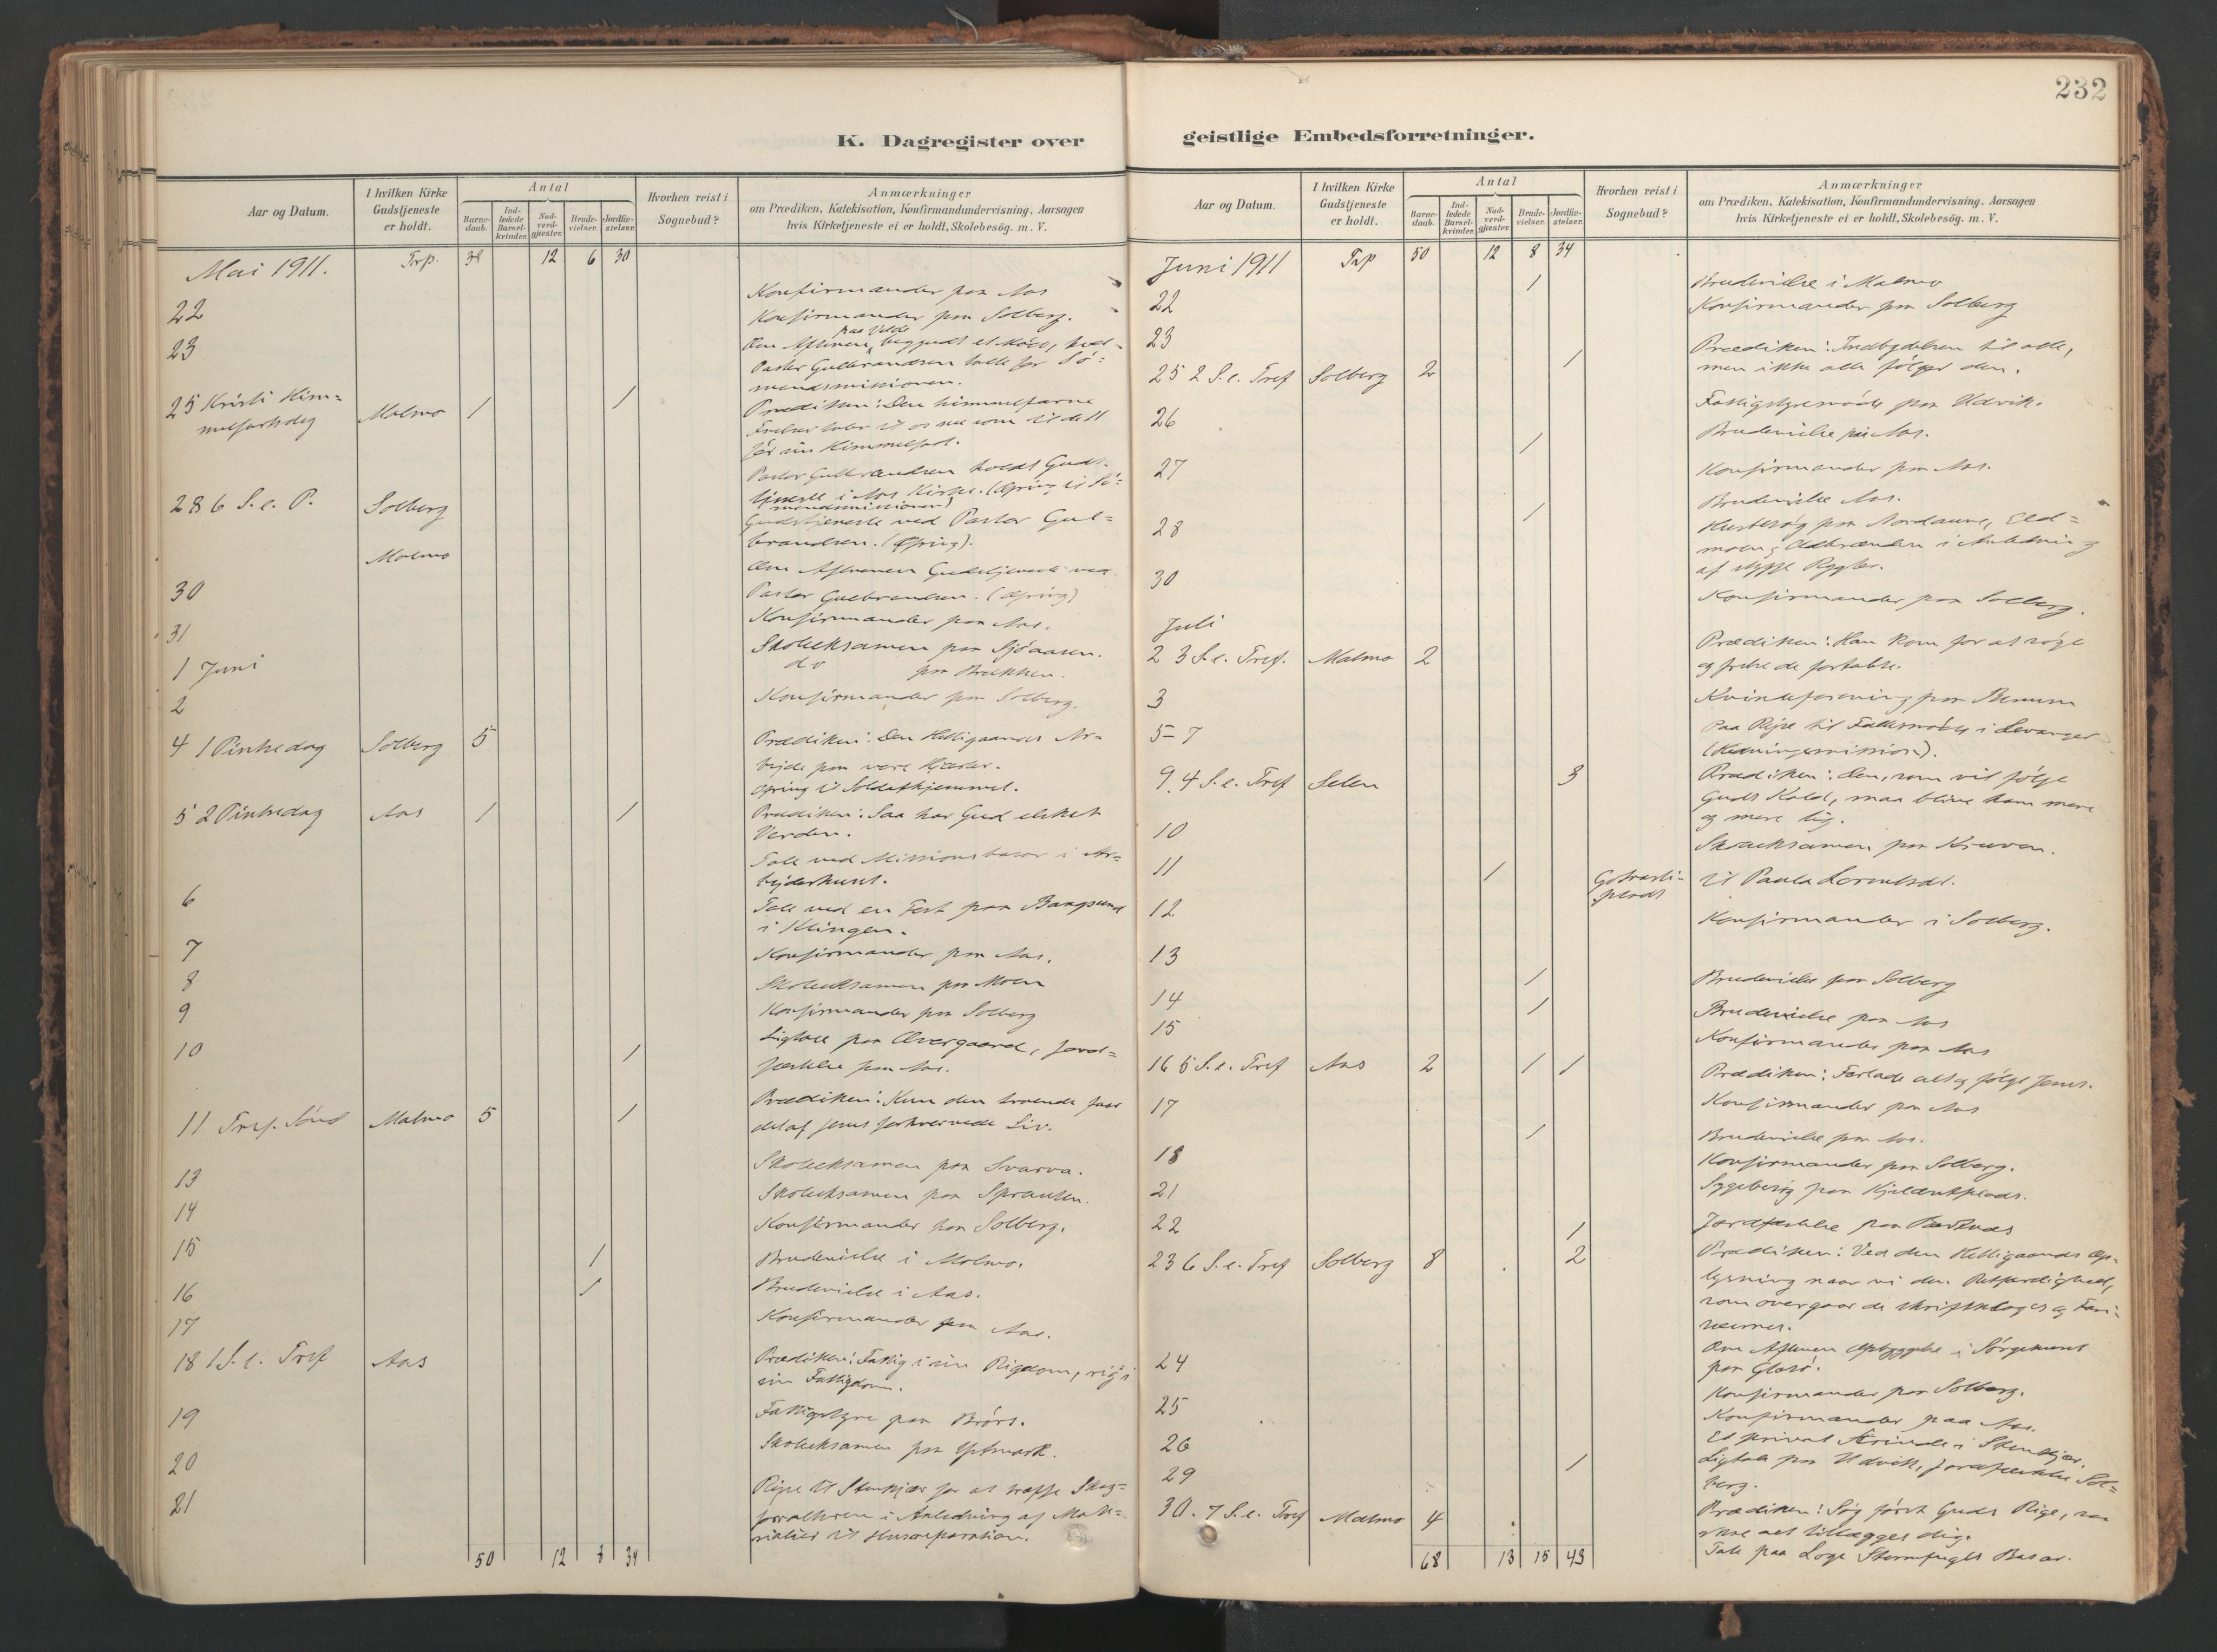 232
K. Dagregister over
Aar og Datum.
I hvilken Kirke
Gudstjeneste
er holdt.
Antal
Barne-
daab.
Ind-
ledede
Barsel-
kvinder.
Nad-
verd-
gjæster.
Brude-
vielser.
Jordfæ-
stelser.
Hvorhen reist i
Sognebud?
Anmærkninger
om Prædiken, Katekisation, Konfirmandundervisning, Aarsagen
hvis Kirketjeneste ei er holdt, Skolebesög. m. V.
Mai 1911. Trp. 38 12 6 30
22 Konfirmander paa Aas
23 Konfirmander paa Solberg.
paa Velde
Om Aftenen begyndt et Møde, hvor
Pastor Gulbrandsen talte for Sø=
mandsmissionen.
25 Kristi Him=
melfartsdag Malmo 1 1
Prædiken: Den himmelfarne
Frelser taler til os nu som til de 11
før sin Himmelfart.
Pastor Gulbrandsen holdt Guds-
tjeneste i Aas Kirke. (Ofring til Sø=
mandsmissionen)
28 6 S. e. P. Solberg
Gudstjeneste ved Pastor Gul=
brandsen. (Ofring).
Malmo
Om Aftenen Gudstjeneste ved
Pastor Gulbrandsen. (Ofring)
30 Konfirmander paa Aas.
31 Skoleeksamen paa Sjøaasen.
1 Juni do paa Brækken.
2 Konfirmander paa Solberg.
4 1 Pinsedag Solberg 5 Prædiken: Den Helligaands Ar=
bejde paa vore Hjærter.
Ofring til Soldathjemmet.
5 2 Pinsedag Aas 1 1 Prædiken: Saa har Gud elsket
Verden.
Tale ved Missionsbasar i Ar=
bejderhuset.
6 Tale ved en Fest paa Bangsund
i Klingen.
7 Konfirmander paa Aas.
8 Skoleeksamen paa Moen
9 Konfirmander paa Solberg
10 1 Ligtale paa Overgaard, Jord=
fæstelse paa Aas.
11 Tref. Sønd Malmo 5 1 Prædiken: Kun den troende faar
del af Jesus forhvervede Liv.
13 Skoleeksamen paa Svarva.
14 Skoleeksamen paa
Konfirmander paa Solberg.
15 1 Brudevielse i Malmo.
16 1 Brudevielse i Aas.
17 Konfirmander paa Aas.
18 1 S. e. Tref Aas Prædiken: Fattig i sin Rigdom, rig i
sin Fattigdom.
19 Fattigstyre paa Brørs.
20 Skoleeksamen paa
21 Rejse til Stenkjær for at træffe Skog=
forvalteren i Anledning af Mate=
rialier til Husreparation.
50 12 8 34
geistlige Embedsforretninger.
Aar og Datum.
I hvilken Kirke
Gudstjeneste
er holdt.
Antal
Barne-
daab.
Ind-
ledede
Barsel-
kvinder.
Nad-
verd-
gjæster.
Brude-
vielser.
Jordfæ-
stelser.
Hvorhen reist i
Sognebud?
Anmærkninger
om Prædiken, Katekisation, Konfirmandundervisning, Aarsagen
hvis Kirketjeneste ei er holdt, Skolebesög. m. V.
Juni 1911 Trp 50 12 8 34
22 1 Brudevielse i Malmo
23 Konfirmander paa Solberg
25 2 S. e. Tref Solberg 2 1 Prædiken: Indbydelsen til alle,
men ikke alle følger den.
26 Fattigstyremøde paa Udvik.
27 1 Brudevielse paa Aas.
Konfirmander paa Aas.
28 1 Brudevielse Aas.
Husbesøg paa Nordaune, Eld=
moen, i Anledning
af stygge Rygter.
30 Konfirmander paa Solberg.
Juli
2 3 S. e. Tref. Malmo 2 Prædiken: Han kom for at søge
og frelse de fortabte.
3 Kvindeforening paa
5-7 Paa Rejse til Fællesmøde i Levanger
(Hedningemission).
9. 4 S. e. Tref Selen 3 Prædiken: Den, som vil følge
Guds Kald, maa blive ham mere
og mere lig.
10 Skoleeksamen paa
11 1 til Paula
12 Konfirmander i Solberg.
13 1 Brudevielse paa Solberg
14 1 Brudevielse paa Aas
15 Konfirmander paa Aas
16 5 S. e. Tref Aas 2 1 1 Prædiken: Forlade alt og følge Jesus.
17 Konfirmander paa Aas
1 Brudevielse paa Aas.
18 Konfirmander paa Solberg.
21 Sygebesøg paa
22 1 Jordfæstelse paa
23 6 S. e. Tref Solberg 8 2 Prædiken: Ved den Helligaands Op-
lysning naar vi den Retfærdighed,
som overgaar de Skriftkloges og Fari-
sæernes.
24 Om Aftenen Opbyggelse i Sørgehuset
paa
25 Konfirmander paa Solberg.
26 Konfirmander paa Aas.
Et privat Ærinde i Stenkjær.
29 1 Ligtale paa Udvik, Jordfæstelse Sol=
berg.
30. 7 S. e. Tref Malmo 4 Prædiken: Søg først Guds Rige, saa
skal alt tillægges dig.
Tale paa Loge Stormfugls Basar.
68 13 15 43